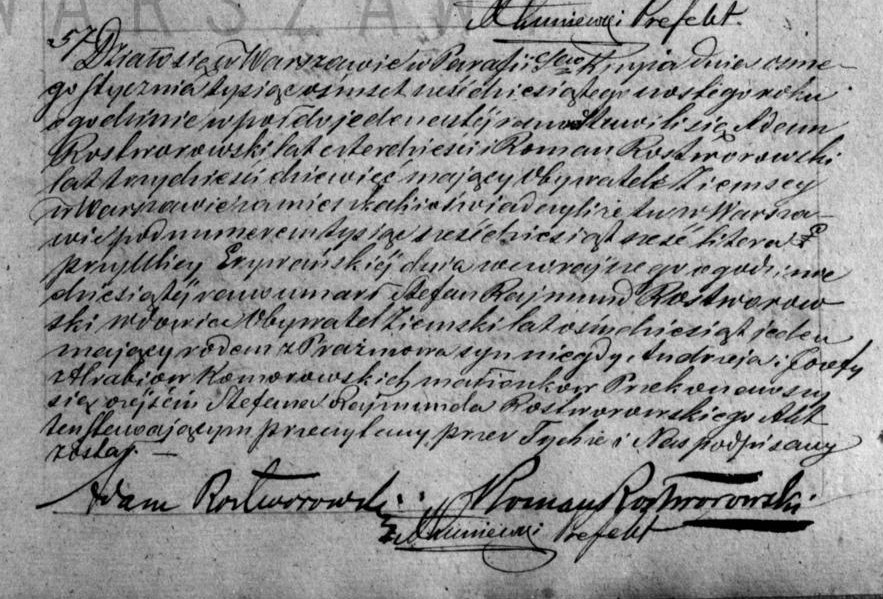 WARSZAW
Prefekt.
57
Działo się w Warszawie w Parafii Śgo Krzyża dnia ósme-
go Stycznia tysiąc ośmset sześćdziesiątego szóstego roku
o godzinie w pół do jedenastéj rano Stawili się Adam
Rostworowski lat czterdzieści i Roman Rostworowski
lat trzydzieści dziewięć mający Obywatele Ziemscy
w Warszawie zamieszkali oświadczyli że tu w Warsza-
wie pod numerem tysiąc sześćdziesiąt sześć litera
przy Ulicy Erywańskiéj dnia wczorajszego o godzinie
dziesiątéj rano umarł Stefan Rajmund Rostworow
ski wdowiec Obywatel Ziemski lat ośmdziesiąt jeden
mający rodem z Prażmowa syn niegdy Andrzeja i Józefy
z Hrabiów Komorowskich małżonków Przekonawszy
się o zejściu Stefana Rajmunda Rostworowskiego Akt
ten Stawającym przeczytany przez Tychże i Nas podpisany
został. —
Adam Rostworowski Roman Rostworowski
Prefekt